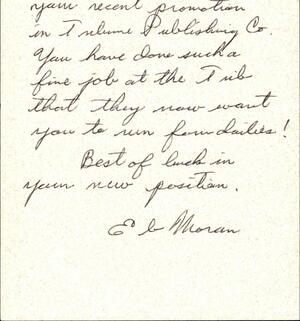 your recent promotion
in Tribune Publishing Co.
You have done such a
fine job at the Trib
that they now want
you to run four dailies!
Best of luck in
your new position.
E b Moran